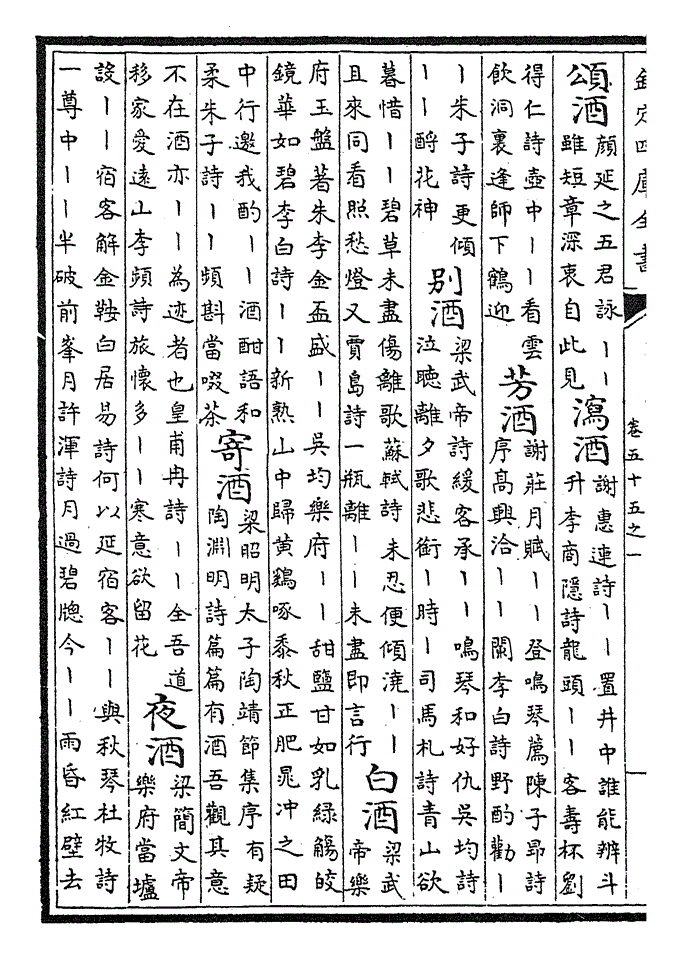 欽定四庫全書
卷五十五之一
頌酒
顔延之五君詠丨丨
雖短章深衷自此見
瀉酒
謝惠連詩丨丨置井中誰能辨斗
升李商隱詩龍頭丨丨客壽杯劉
得仁詩壺中丨丨看雲
飲洞裏逢師下鶴迎
芳酒
謝莊月賦丨丨登鳴琴薦陳子昻詩
序高興洽丨丨闌李白詩野酌勸丨
丨朱子詩更傾
丨丨酹花神
别酒
梁武帝詩緩客承丨丨鳴琴和好仇吳均詩
泣聽離夕歌悲銜丨時丨司馬札詩青山欲
暮惜丨丨碧草未盡傷離歌蘇軾詩未忍便傾澆丨丨
且來同看照愁燈又賈島詩一瓶離丨丨未盡即言行
白酒
梁武
帝樂
府玉盤著朱李金盃盛丨丨吳均樂府丨丨甜鹽甘如乳綠觴皎
鏡華如碧李白詩丨丨新熟山中歸黄鷄啄黍秋正肥晁冲之田
中行邀我酌丨丨酒酣語和
柔朱子詩丨丨頻斟當啜茶
寄酒
梁昭明太子陶靖節集序有疑
陶淵明詩篇篇有酒吾觀其意
不在酒亦丨丨為迹者也皇甫冉詩丨丨全吾道
移家愛遠山李頻詩旅懷多丨丨寒意欲留花
夜酒
梁簡文帝
樂府當壚
設丨丨宿客解金鞍白居易詩何以延宿客丨丨與秋琴杜牧詩
一尊中丨丨半破前峯月許渾詩月過碧牕今丨丨雨昏紅壁去